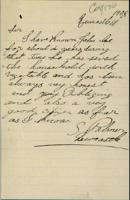 Newcastle
Sir
I have Known John
for about 10 years during
that time he has served
the household with
vegetable and has been
always very honest
and very obliging
and also a very
good officer as far
as I know
S Palmer
Newcastle